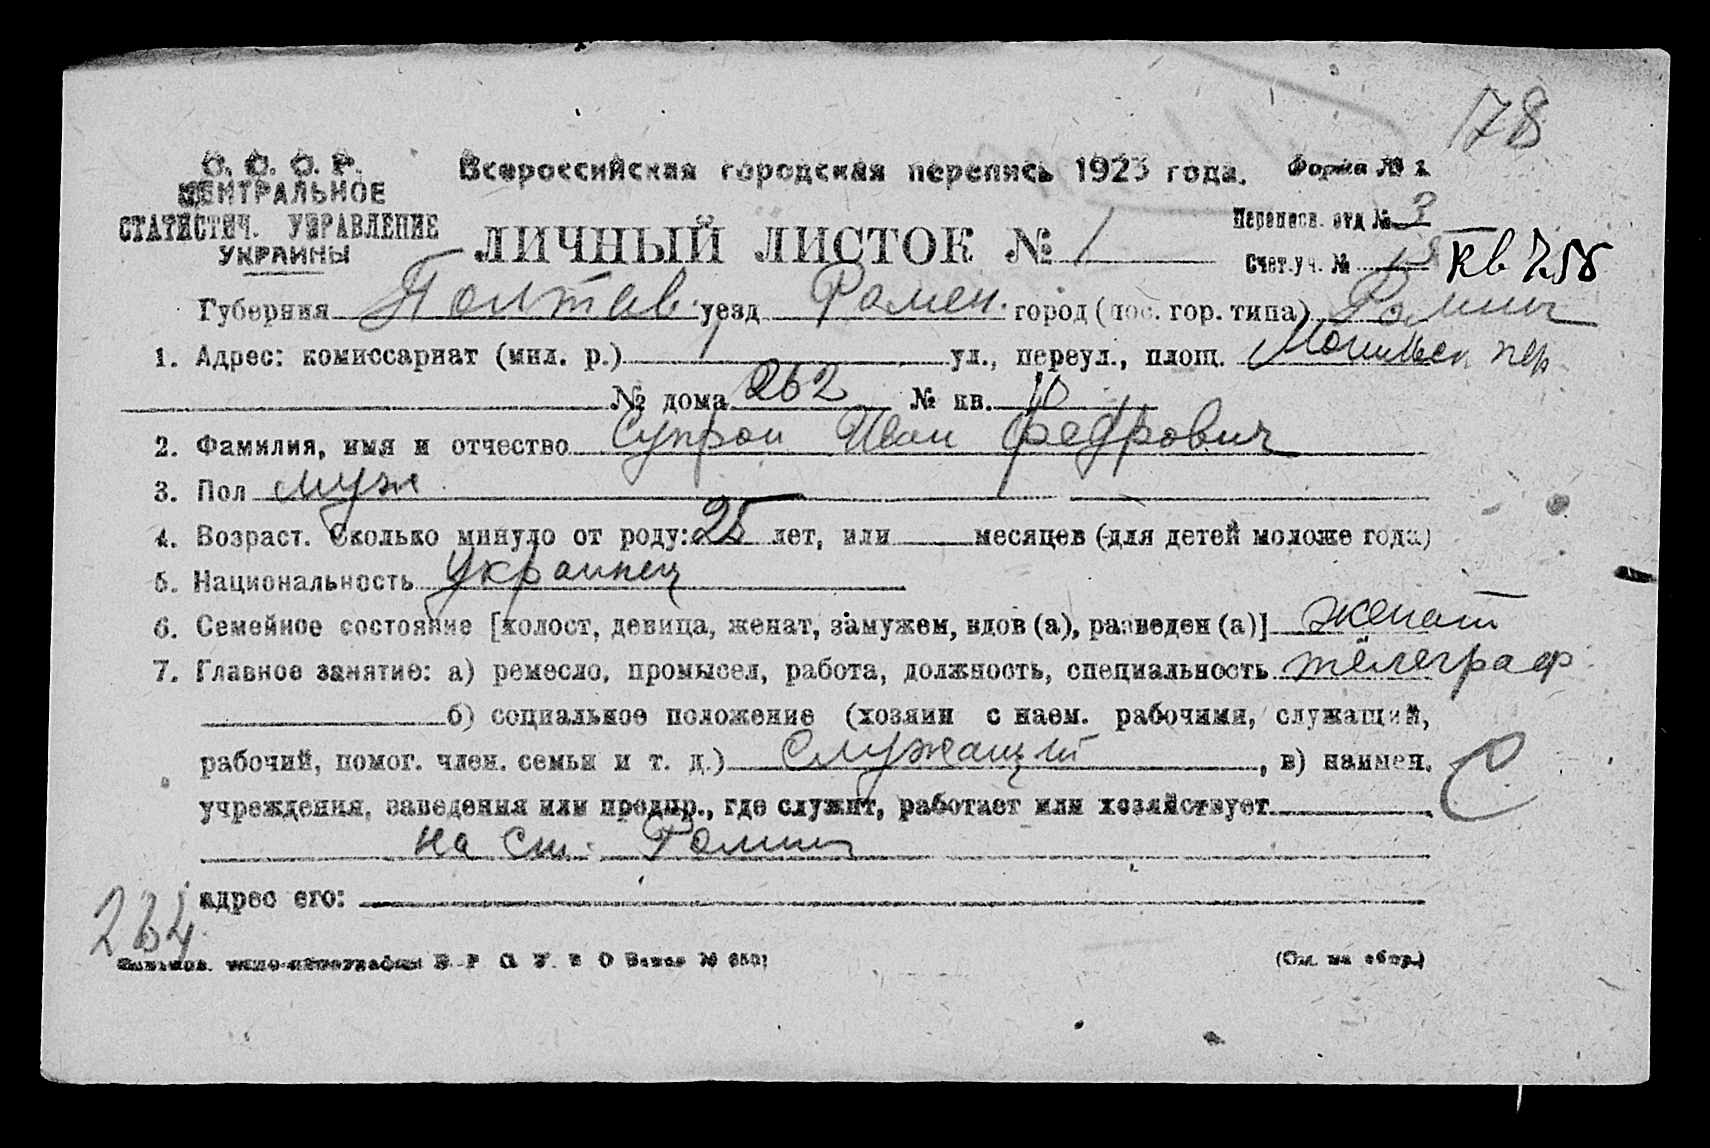 178
С. С. С. Р.
ЦЕНТРАЛЬНОЕ
СТАТИСТИЧ. УПРАВЛЕНИЕ
УКРАИНЫ
Всероссийская городская перепись 1923 года.
Форма № 1.
ЛИЧНЫЙ ЛИСТОК № 1
Переписн. отд № 3
Счет. уч. № 18 кв 758
Губерния Полтав. уезд Ромен. город (пос. гор. типа) Ромны
1. Адрес: комиссариат (мил. р.) 1 ул., переул., площ. пер
№ дома 262 № кв. 10
2. Фамилия, имя и отчество Супрон Иван Федрович
3. Пол муж
4. Возраст. Сколько минуло от роду: 25 лет, или месяцев (для детей моложе года)
5. Национальность Украинец
6. Семейное состояние [холост, девица, женат, замужем, вдов (а), разведен (а)] женат
7. Главное занятие: а) ремесло, промысел, работа, должность, специальность телеграф
б) социальное положение (хозяин с наем. рабочими, служащий,
рабочий, помог. член. семьи и т. д.) Служащий, в) наимен.
учреждения, заведения или предпр., где служит, работает или хозяйствует
С
на ст. Ромны
адрес его:
264
(См. на обор.)